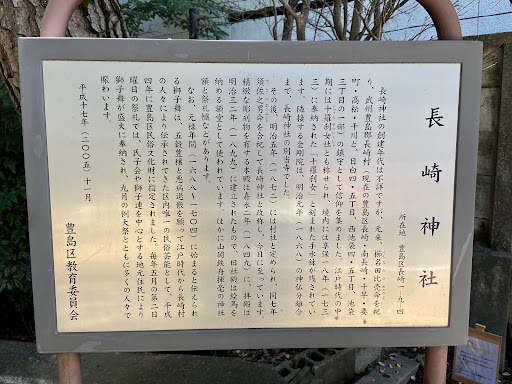 長崎神社
所在地 豊島区長崎一-九-四
長崎神社の創建年代は不詳ですが、元来、櫛名田比売命を祀
り、武州豊島郡長崎村（現在の豊島区長崎・南長崎・千早・要
町・高松・千川と、目白四・五丁目、西池袋四・五丁目、池袋
三丁目の一部）の鎮守として信仰を集めました。江戸時代の中
期には十羅刹女社とも称せられ、境内には享保一八年（一七三
三）に奉納された「十羅刹女」と刻まれた手水鉢が残されてい
ます。隣接する金剛院は、明治元年（一八六八）の神仏分離令
まで、長崎神社の別当寺でした。
その後、明治五年（一八七二）には村社と定められ、同七年
須佐之男命を合祀して長崎神社と改称し、今日に至っています。
精緻な彫刻を有する本殿は嘉永二年（一八四九）に、拝殿は
明治三二年（一八九九）に建立されたもので、旧社殿は絵馬を
納める額堂として使われています。ほかには関跋舟揮毫の神社
額と祭礼幟などがあります。
なお、元禄年間（一六八八〜一七〇四）に始まると伝えられ
る獅子舞は、五穀豊穣と悪病退散を願って江戸時代から長崎村
の人々により伝承されてきた区内唯一の民俗芸能として、平成
四年に豊島区民俗文化財に指定されました。毎年五月の第二日
曜日の祭礼では、氏子会や獅子連を中心とする地元住民により
獅子舞が盛大に奉納され、九月の例大祭とともに多くの人々で
賑わいます。
平成十七年（二〇〇五）十一月
豊島区教育委員会